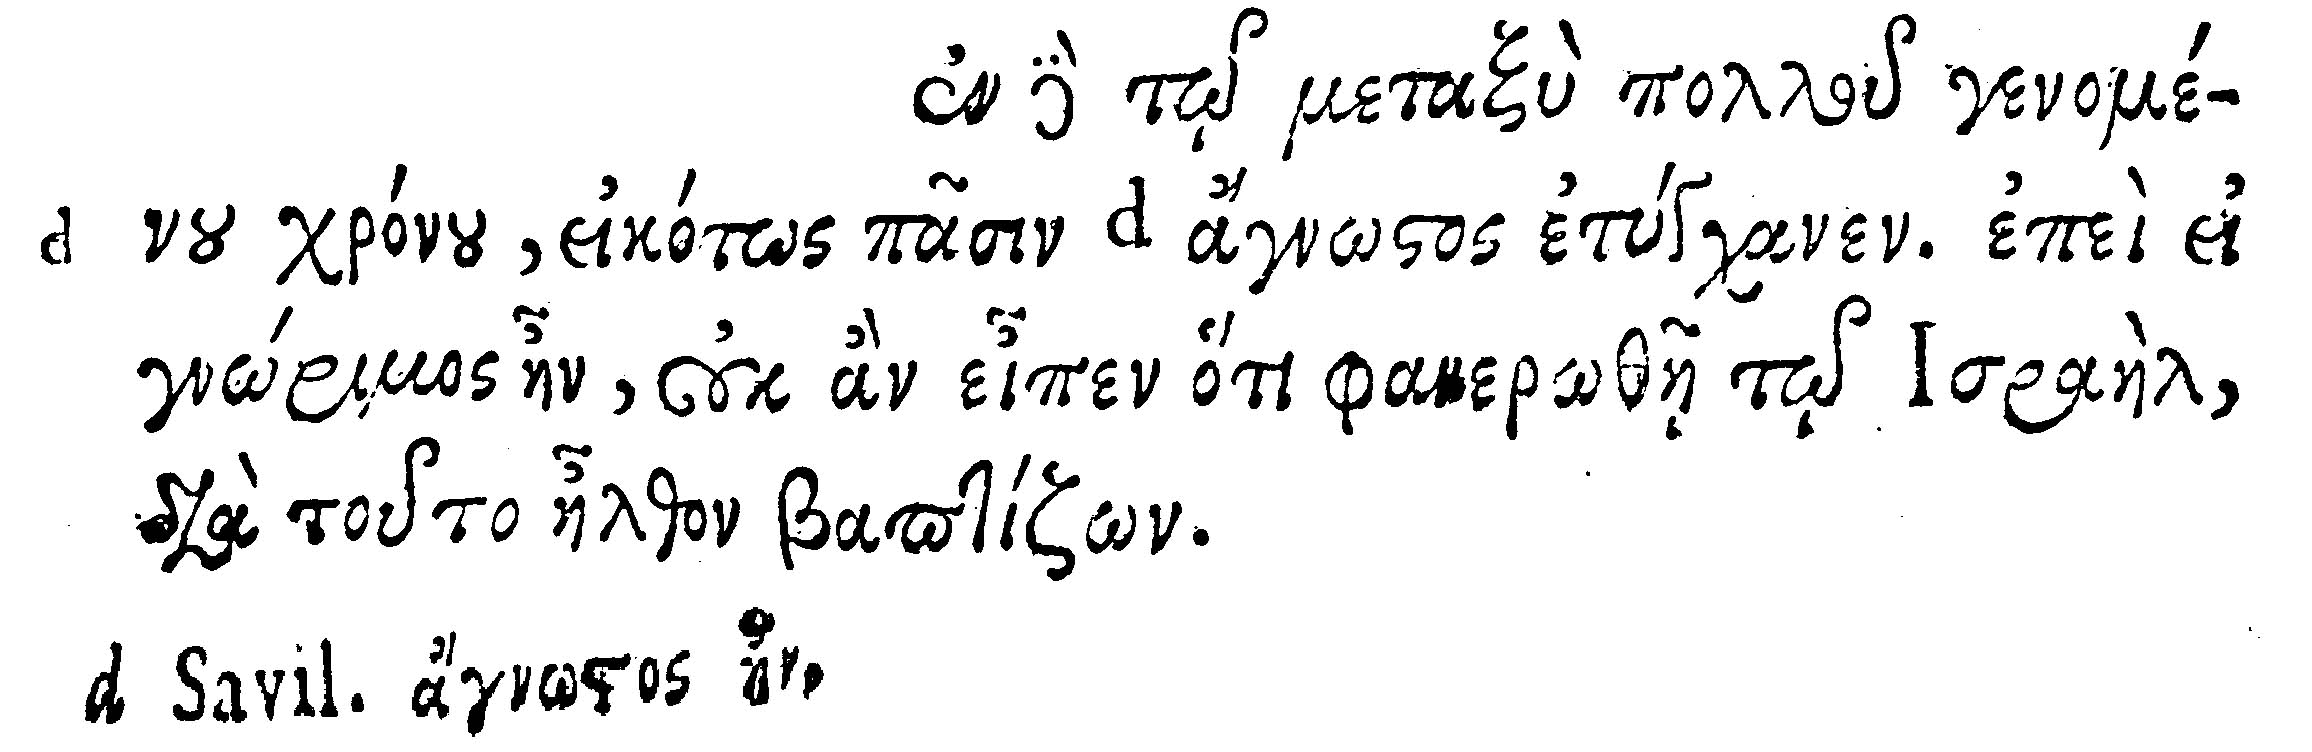 ἐν δὲ τῷ μεταξὺ πολλοῦ γενομέ-
d νου χρόνου, εἰκότως πᾶσιν d ἄγνωστος ἐτύγχανεν. ἐπεὶ εἰ
γνώριμος ἦν, οὐκ ἂν εἶπεν ὅτι φανερωθῇ τῷ Ισραὴλ,
διὰ τοῦτο ἦλθον βαπτίζων.
d Savil. ἄγνωστος ἦν,